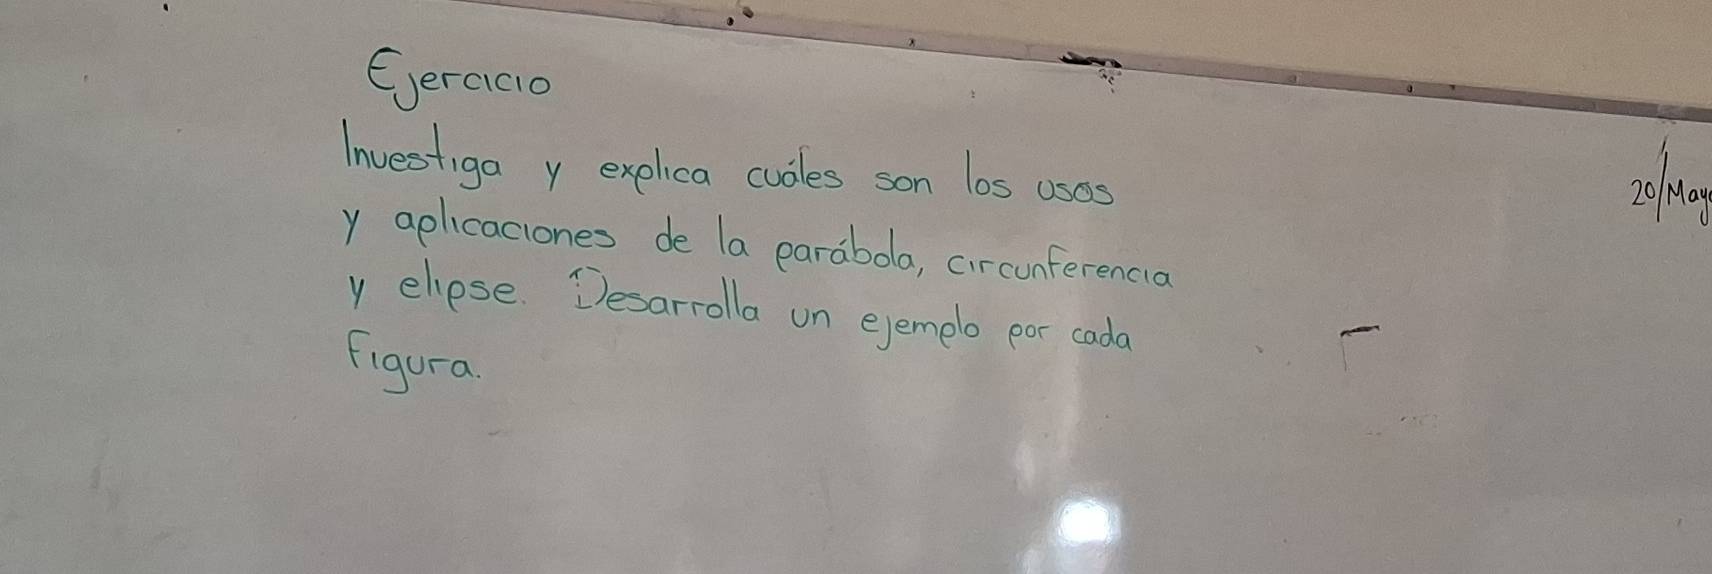 Ejercicio
Investiga y explica cuáles son los usos
y aplicaciones de la parábola, circunferencia
y elipse. Desarrolla un ejemplo por cada
figura.
20/May